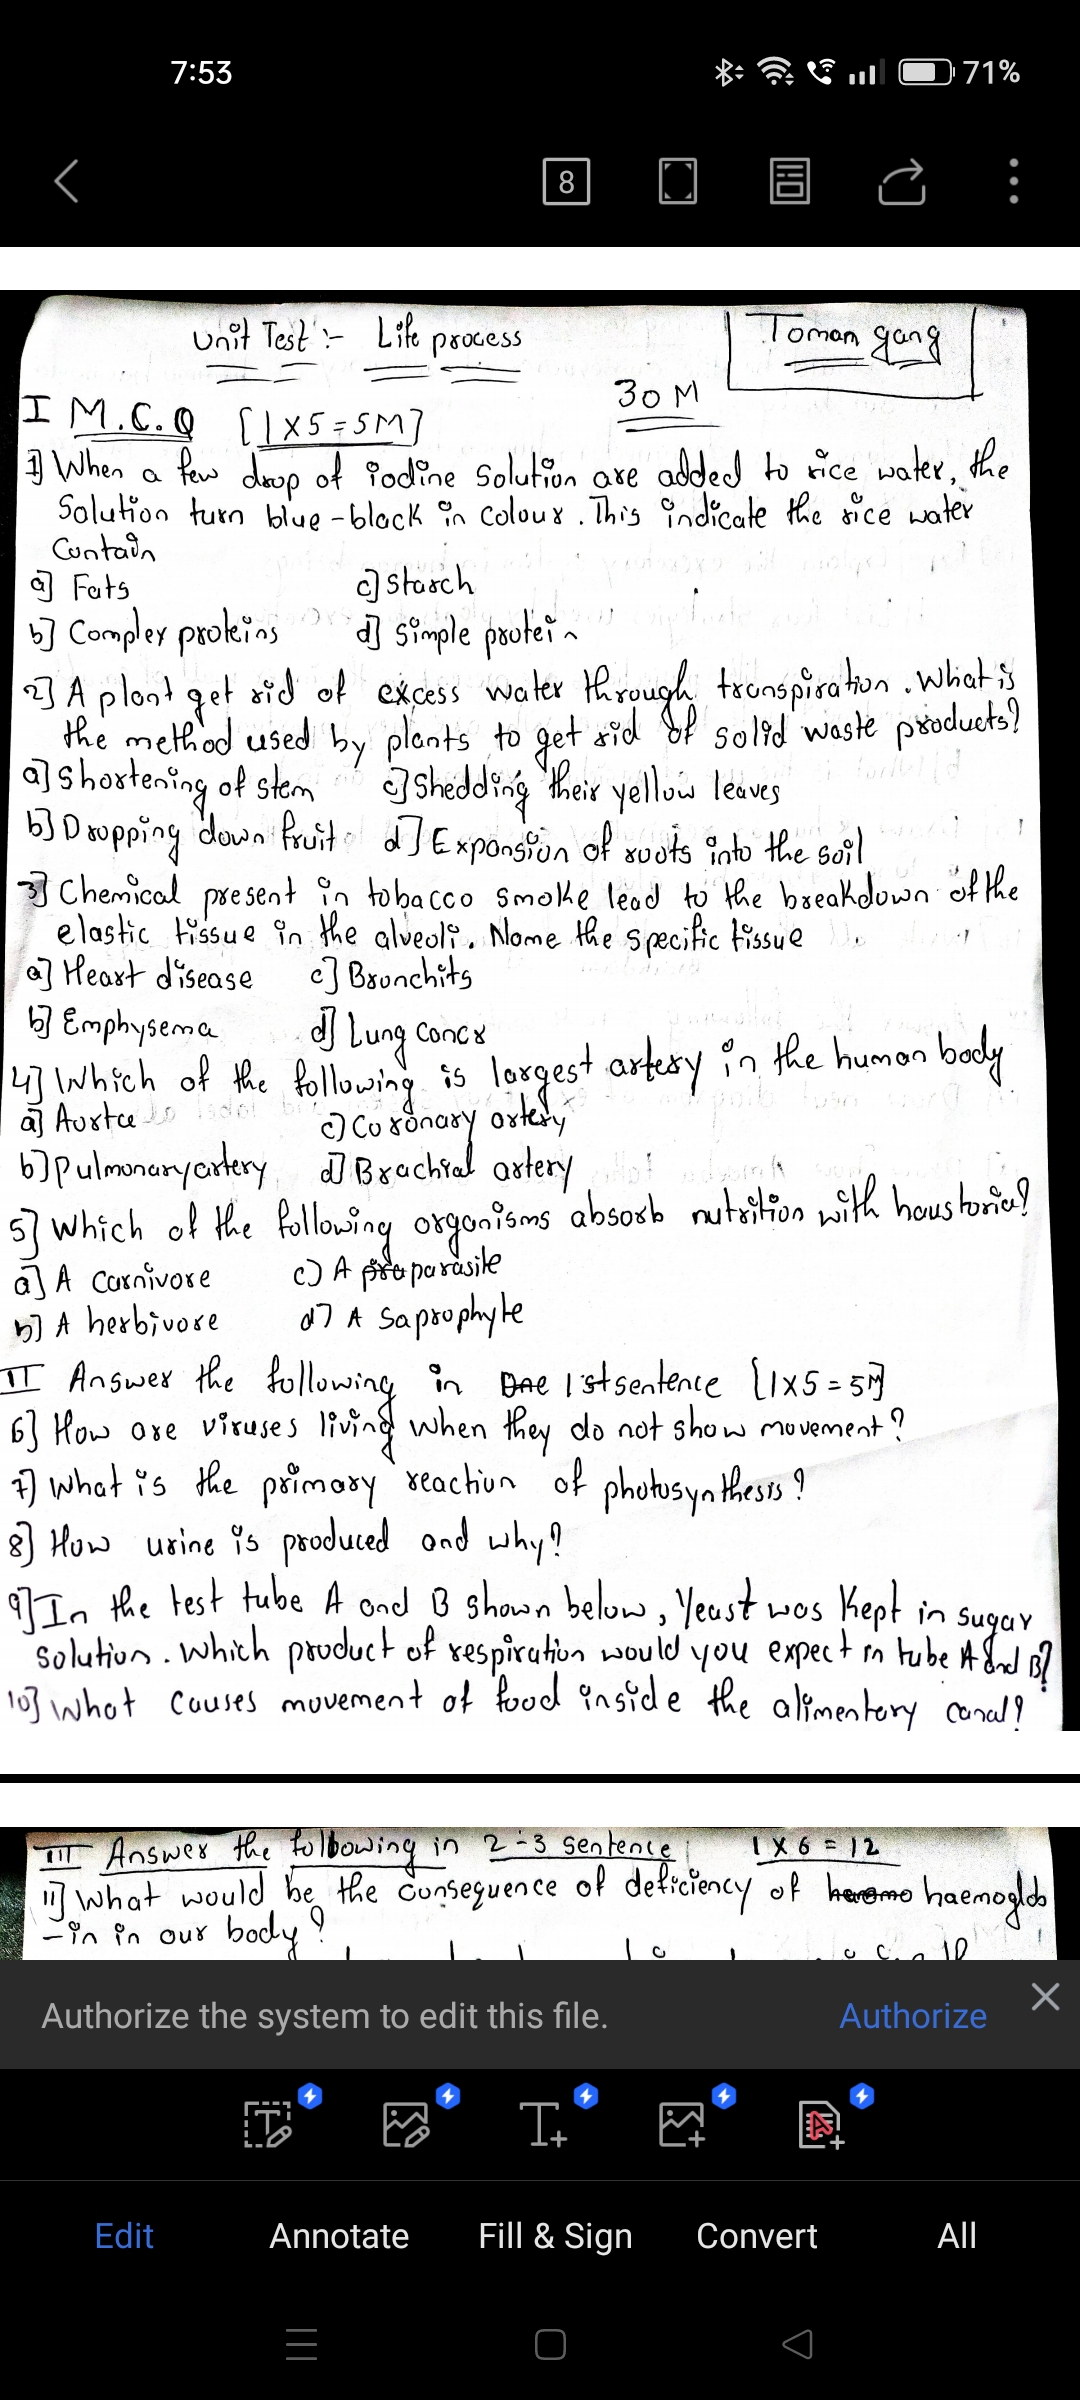 7:53
71%
8
Unit Test :- Life process
Toman gang
30 M
I M.C.Q [1x5=5M]
1] When a few drop of iodine solution are added to rice water, the
solution turn blue-black in colour. This indicate the rice water
contain
a] Fats c] Starch
b] Complex proteins d] Simple protein
2] A plant get rid of excess water through transpiration. What is
the method used by plants to get rid of solid waste products?
a] Shortening of stem c] Shedding their yellow leaves
b] Dropping down fruit d] Expansion of roots into the soil
3] Chemical present in tobacco smoke lead to the breakdown of the
elastic tissue in the alveoli. Name the specific tissue
a] Heart disease c] Bronchits
b] Emphysema d] Lung Concr
4] Which of the following is largest artery in the human body
a] Aorta c) Coronary artery
b] pulmonary artery d] Brachial artery
5] Which of the following organisms absorb nutrition with haustoria?
a] A carnivore c) A parasite
b] A herbivore d] A Saprophyte
II Answer the following in 1st sentence [1x5=5M]
6] How are viruses living when they do not show movement?
7] What is the primary reaction of photosynthesis?
8] How urine is produced and why?
9] In the test tube A and B shown below, Yeast was Kept in sugar
solution. Which product of respiration would you expect in tube A and B?
10] What causes movement of food inside the alimentary canal?
III Answer the following in 2-3 sentence 1x6=12
11] What would be the consequence of deficiency of haemoglob
-in in our body?
Authorize the system to edit this file. Authorize
Edit Annotate Fill & Sign Convert All